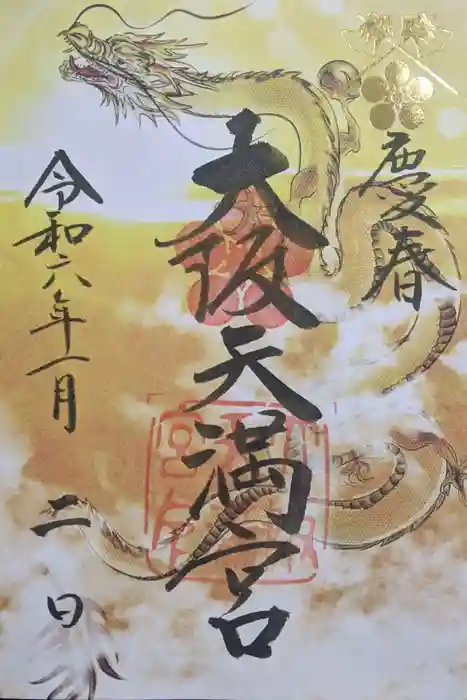 慶春
大阪天満宮
令和六年一月
二日